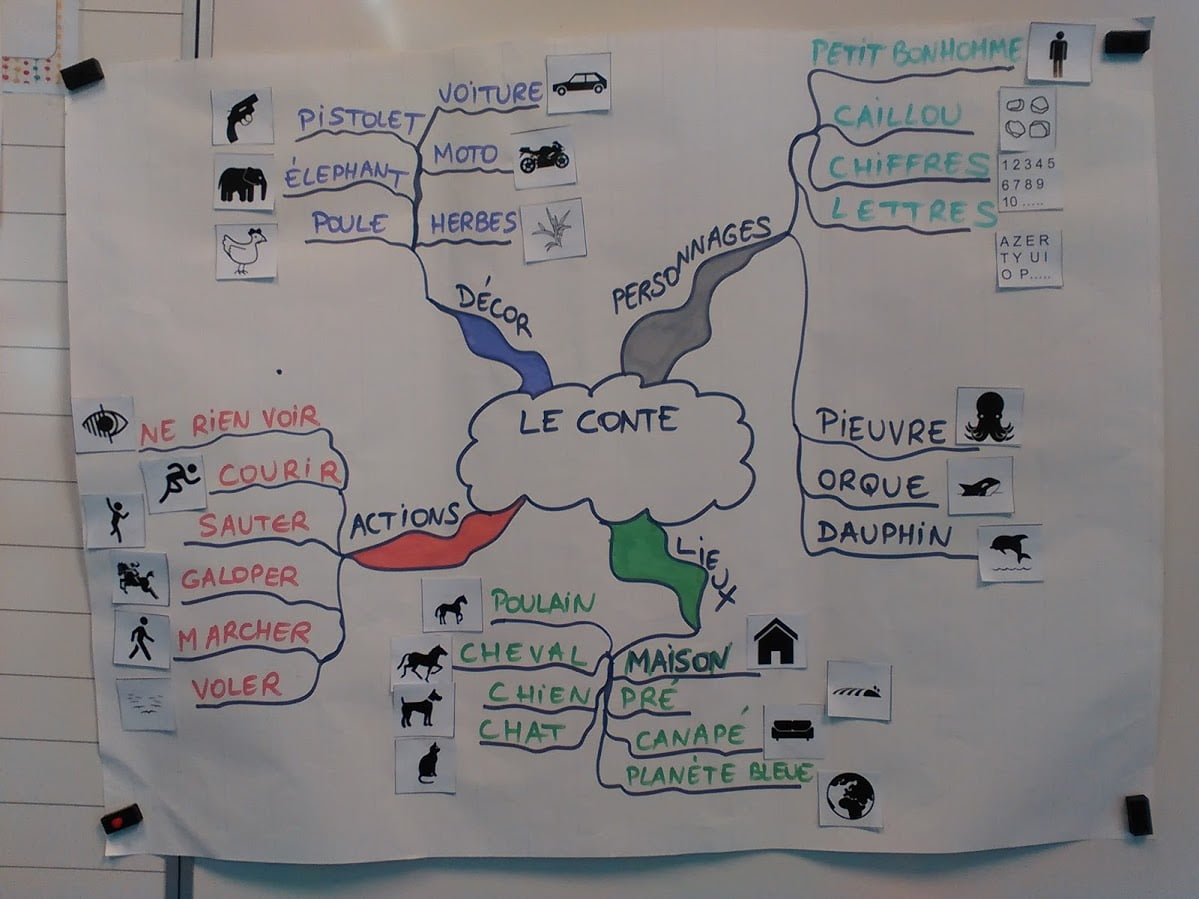 LE CONTE
DÉCOR
PISTOLET
ÉLEPHANT
POULE
VOITURE
MOTO
HERBES
PERSONNAGES
PETIT BONHOMME
CAILLOU
CHIFFRES
1 2 3 4 5
6 7 8 9
10 .....
LETTRES
A Z E R
T Y U I
O P.....
PIEUVRE
ORQUE
DAUPHIN
ACTIONS
NE RIEN VOIR
COURIR
SAUTER
GALOPER
MARCHER
VOLER
LIEUX
POULAIN
CHEVAL
CHIEN
CHAT
MAISON
PRÉ
CANAPÉ
PLANÈTE BLEUE